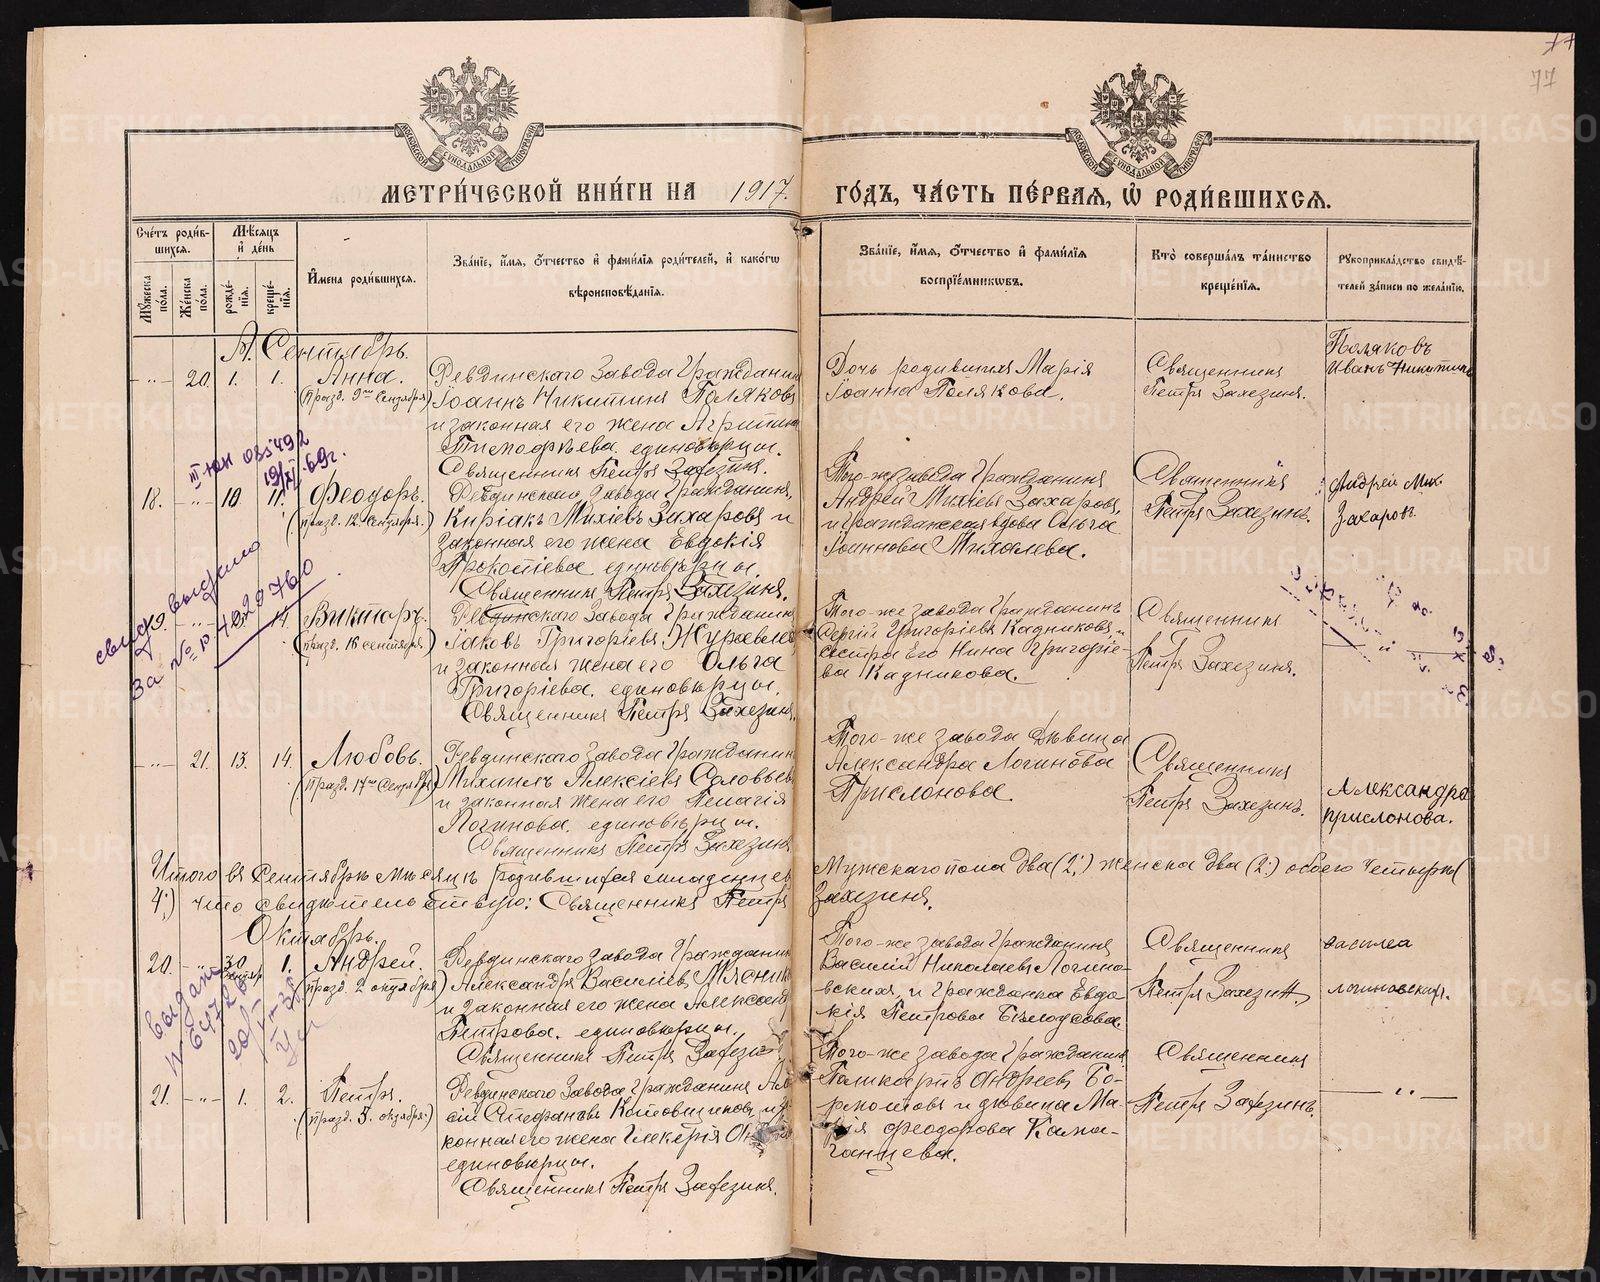 77
МОСКОВСКОЙ СѴНОДАЛЬНОЙ ТИПОГРАФІИ
МОСКОВСКОЙ СѴНОДАЛЬНОЙ ТИПОГРАФІИ
МЕТРИ́ЧЕСКОЙ КНИ́ГИ НА 1917. ГО́ДЪ, ЧА́СТЬ ПЕ́РВАЯ, Ѡ РОДИ́ВШИХСЯ.
Сче́тъ роди́вшихся.
Мꙋ́жеска по́ла.
Же́нска по́ла.
Мѣ́сяцъ и де́нь
рожде́нія.
креще́нія.
И́мена роди́вшихся.
Зва́ніе, и́мя, о́тчество и фами́лія роди́телей, и како́гѡ вѣроисповѣ́данія.
Зва́ніе, и́мя, о́тчество и фами́лія воспрїе́мникѡвъ.
Кто̀ соверша́лъ та́инство креще́нія.
Рꙋкоприкла́дство свидѣ́телей за́писи по жела́нію.
Сентябрь.
-"- 20. 1. 1. Анна.
(празд. 9го Сентября)
Ревдинскаго Завода Гражданин
Іоаннъ Никитинъ Поляковъ
и законная его жена Агрипина
Тимофѣева. единовѣрцы.
Священникъ Петръ Захезинъ.
Дочь родителя Марія
Іоаннова Полякова.
Священникъ
Петръ Захезинъ.
Поляковъ
Иванъ Никитинъ
18. -"- 10 11. Феодоръ.
(празд. 12 Сентября.)
Ревдинскаго завода Гражданинъ,
Киріакъ Михіевъ Захаровъ и
законная его жена Евдокія
Прокопіева единовѣрцы.
Священникъ Петръ Захезинъ.
Того-же завода Гражданинъ
Андрей Михіевъ Захаровъ,
и гражданская вдова Ольга
Іоаннова Михалева.
Священникъ
Петръ Захезинъ.
Андрей Мих.
Захаровъ
свид. выдано
За № 4029760
19. -"- 14. Викторъ.
(празд. 16 сентября.)
Ревдинскаго Завода Гражданинъ
Іаковъ Григоріевъ Журавлев
и законная жена его Ольга
Григоріева. единовѣрцы.
Священникъ Петръ Захезинъ.
Того-же завода Гражданинъ
Сергій Григоріевъ Кадниковъ, и
сестра Его Нина Григоріе-
ва Кадникова.
Священникъ
Петръ Захезинъ.
-"- 21. 13. 14. Любовь.
(празд. 17го Сентября)
Ревдинскаго завода Гражданин
Михаилъ Алексіевъ Соловьев
и законная жена его Пелагія
Логинова. единовѣрцы.
Священникъ Петръ Захезинъ
Того-же завода Дѣвица
Александра Логинова
Прислонова.
Священникъ
Петръ Захезинъ.
Александра
прислонова.
Итого въ Сентябрѣ мѣсяцѣ родившихся младенцев Мужскаго пола два (2.) женска два (2.) обоего четыре (
4.) что свидѣтельствую: Священникъ Петръ Захезинъ.
Октябрь.
20. -"- 30 Сентяб. 1. Андрей.
(празд. 2 октября)
Ревдинскаго завода Гражданин
Александръ Василіев, Мясник
и законная его жена Александ
Петрова. единовѣрцы.
Священникъ Петръ Захезин
Того-же завода Гражданинъ
Василій Николаевъ Логино-
вскихъ, и гражданка Евдо-
кія Петрова Бѣлоусова.
Священникъ
Петръ Захезин.
василеи
логиновских.
21. -"- 1. 2. Петръ.
(празд. 5. октября.)
Ревдинскаго Завода Гражданинъ Ал
сій Стефановъ Котовщиковъ, и за-
конная его жена Гликерія
единовѣрцы.
Священникъ Петръ Захезинъ.
Того-же завода Гражданинъ
Поликарпъ Андреевъ Бо-
и дѣвица Ма-
рія феодорова Кама-
ганцева.
Священникъ
Петръ Захезинъ.
—"—